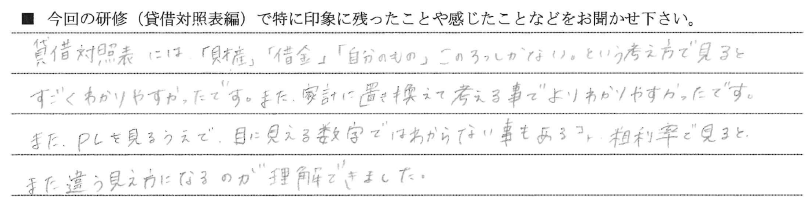 ■ 今回の研修（貸借対照表編）で特に印象に残ったことや感じたことなどをお聞かせ下さい。
貸借対照表には、「財産」「借金」「自分のもの」この3つしかない。という考え方で見ると
すごくわかりやすかったです。また、家計に置き換えて考える事でよりわかりやすかったです。
また、PLを見るうえで、目に見える数字ではわからない事もあるコト、粗利率で見ると、
また違う見え方になるのが理解できました。